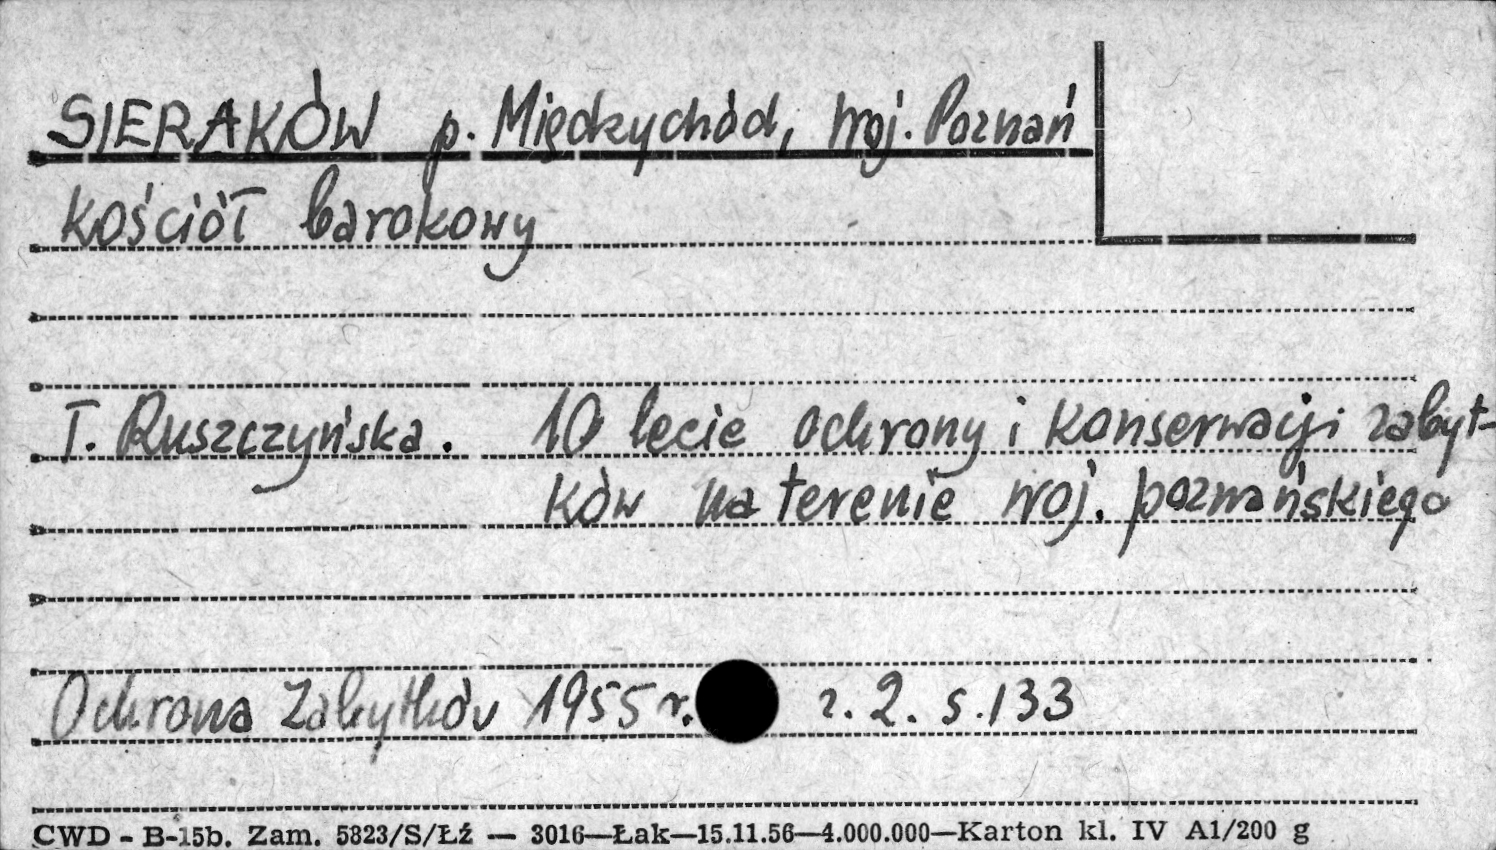 SIERAKÓW p. Międzychód, woj. Poznań
Kościół barokowy
T. Ruszczyńska. 10 lecie ochrony i konserwacji zabyt-
ków na terenie woj. poznańskiego
Ochrona Zabytków 1955 r. z. 2. s. 133
CWD - B-15b. Zam. 5823/S/Łź — 3016—Łak—15.11.56—4.000.000—Karton kl. IV A1/200 g